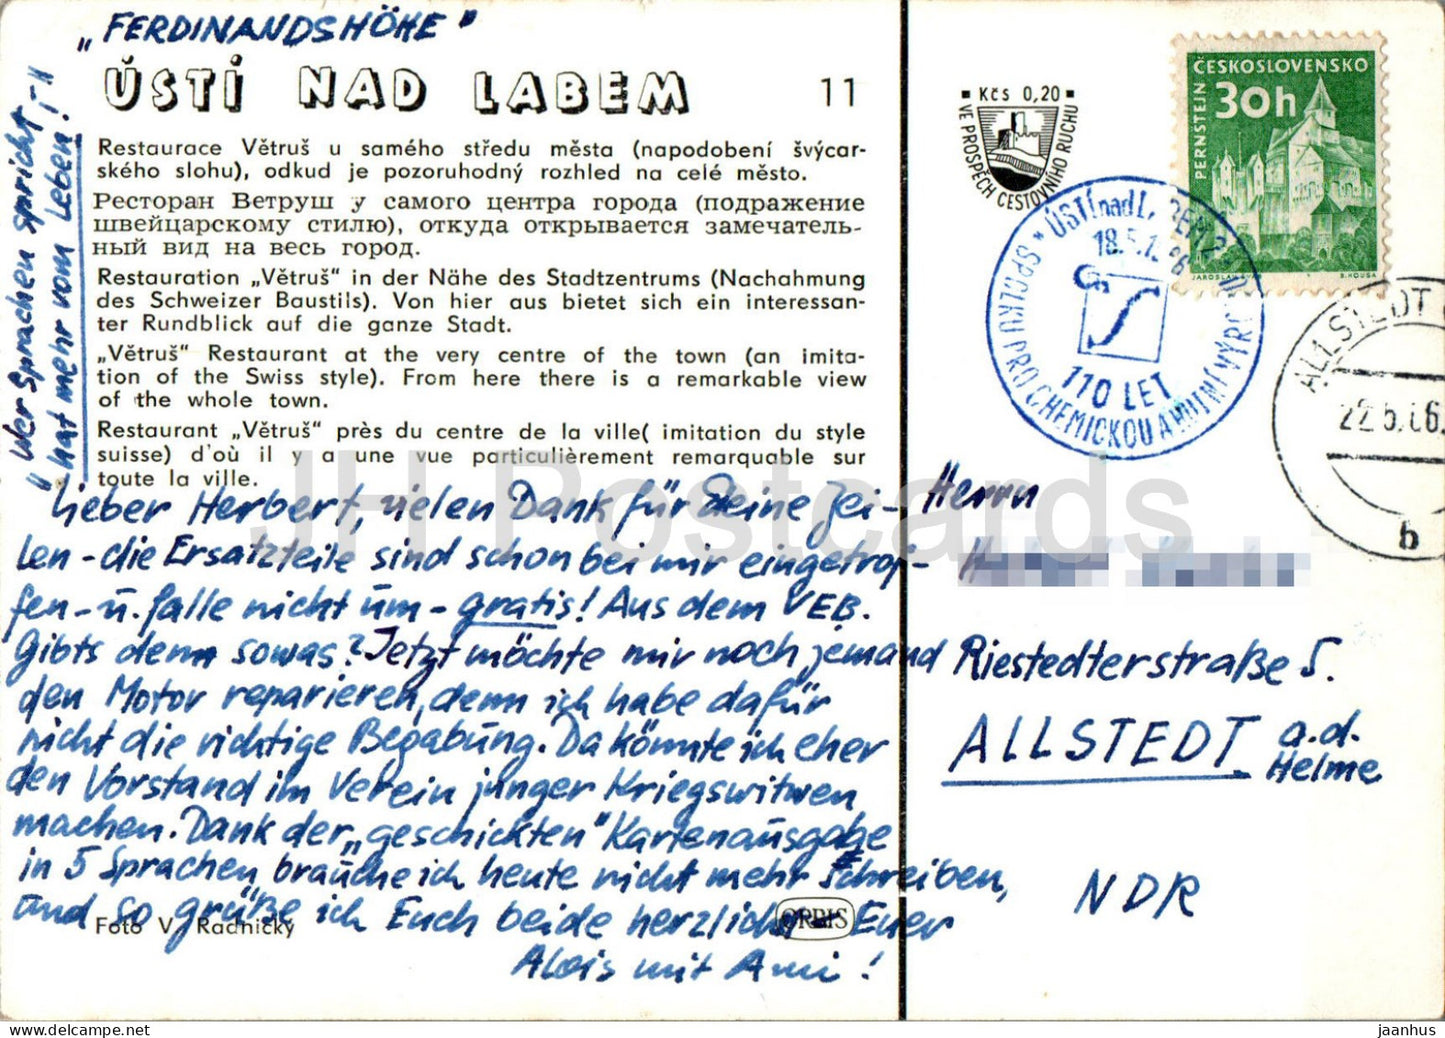 „FERDINANDSHÖHE"
ÚSTÍ NAD LABEM 11
Restaurace Větruš u samého středu města (napodobení švýcar-
ského slohu), odkud je pozoruhodný rozhled na celé město.
Ресторан Ветруш у самого центра города (подражение
швейцарскому стилю), откуда открывается замечатель-
ный вид на весь город.
Restauration „Větruš" in der Nähe des Stadtzentrums (Nachahmung
des Schweizer Baustils). Von hier aus bietet sich ein interessan-
ter Rundblick auf die ganze Stadt.
„Větruš" Restaurant at the very centre of the town (an imita-
tion of the Swiss style). From here there is a remarkable view
of the whole town.
Restaurant „Větruš" près du centre de la ville( imitation du style
suisse) d'où il y a une vue particulièrement remarquable sur
toute la ville.
"Wer Sprachen spricht,-"
"hat mehr vom Leben!
Lieber Herbert, vielen Dank für Deine Zei-
len - die Ersatzteile sind schon bei mir eingetrof-
fen - u. falle nicht um - gratis! Aus dem VEB.
Gibts denn sowas? Jetzt möchte mir noch jemand
den Motor reparieren, denn ich habe dafür
nicht die richtige Begabung. Da könnte ich eher
den Vorstand im Verein junger Kriegswitwen
machen. Dank der „geschickten" Kartenausgabe
in 5 Sprachen, brauche ich heute nicht mehr schreiben,
und so grüße ich Euch beide herzlichst Euer
Alois mit Ami!
Foto V. Rácnický
ORBIS
Kčs 0,20
VE PROSPĚCH CESTOVNÍHO RUCHU
ČESKOSLOVENSKO
30h
PERNŠTEJN
B. KOUSA
ÚSTÍ nad L
18.5.
SPOLKU PRO CHEMICKOU A HUTNÍ VÝRO
110 LET
ALLSTEDT
22.5.66.
b
Herrn
Riestedterstraße 5.
ALLSTEDT a.d.
Helme
NDR
JH Postcards
jaanhus www.delcampe.net